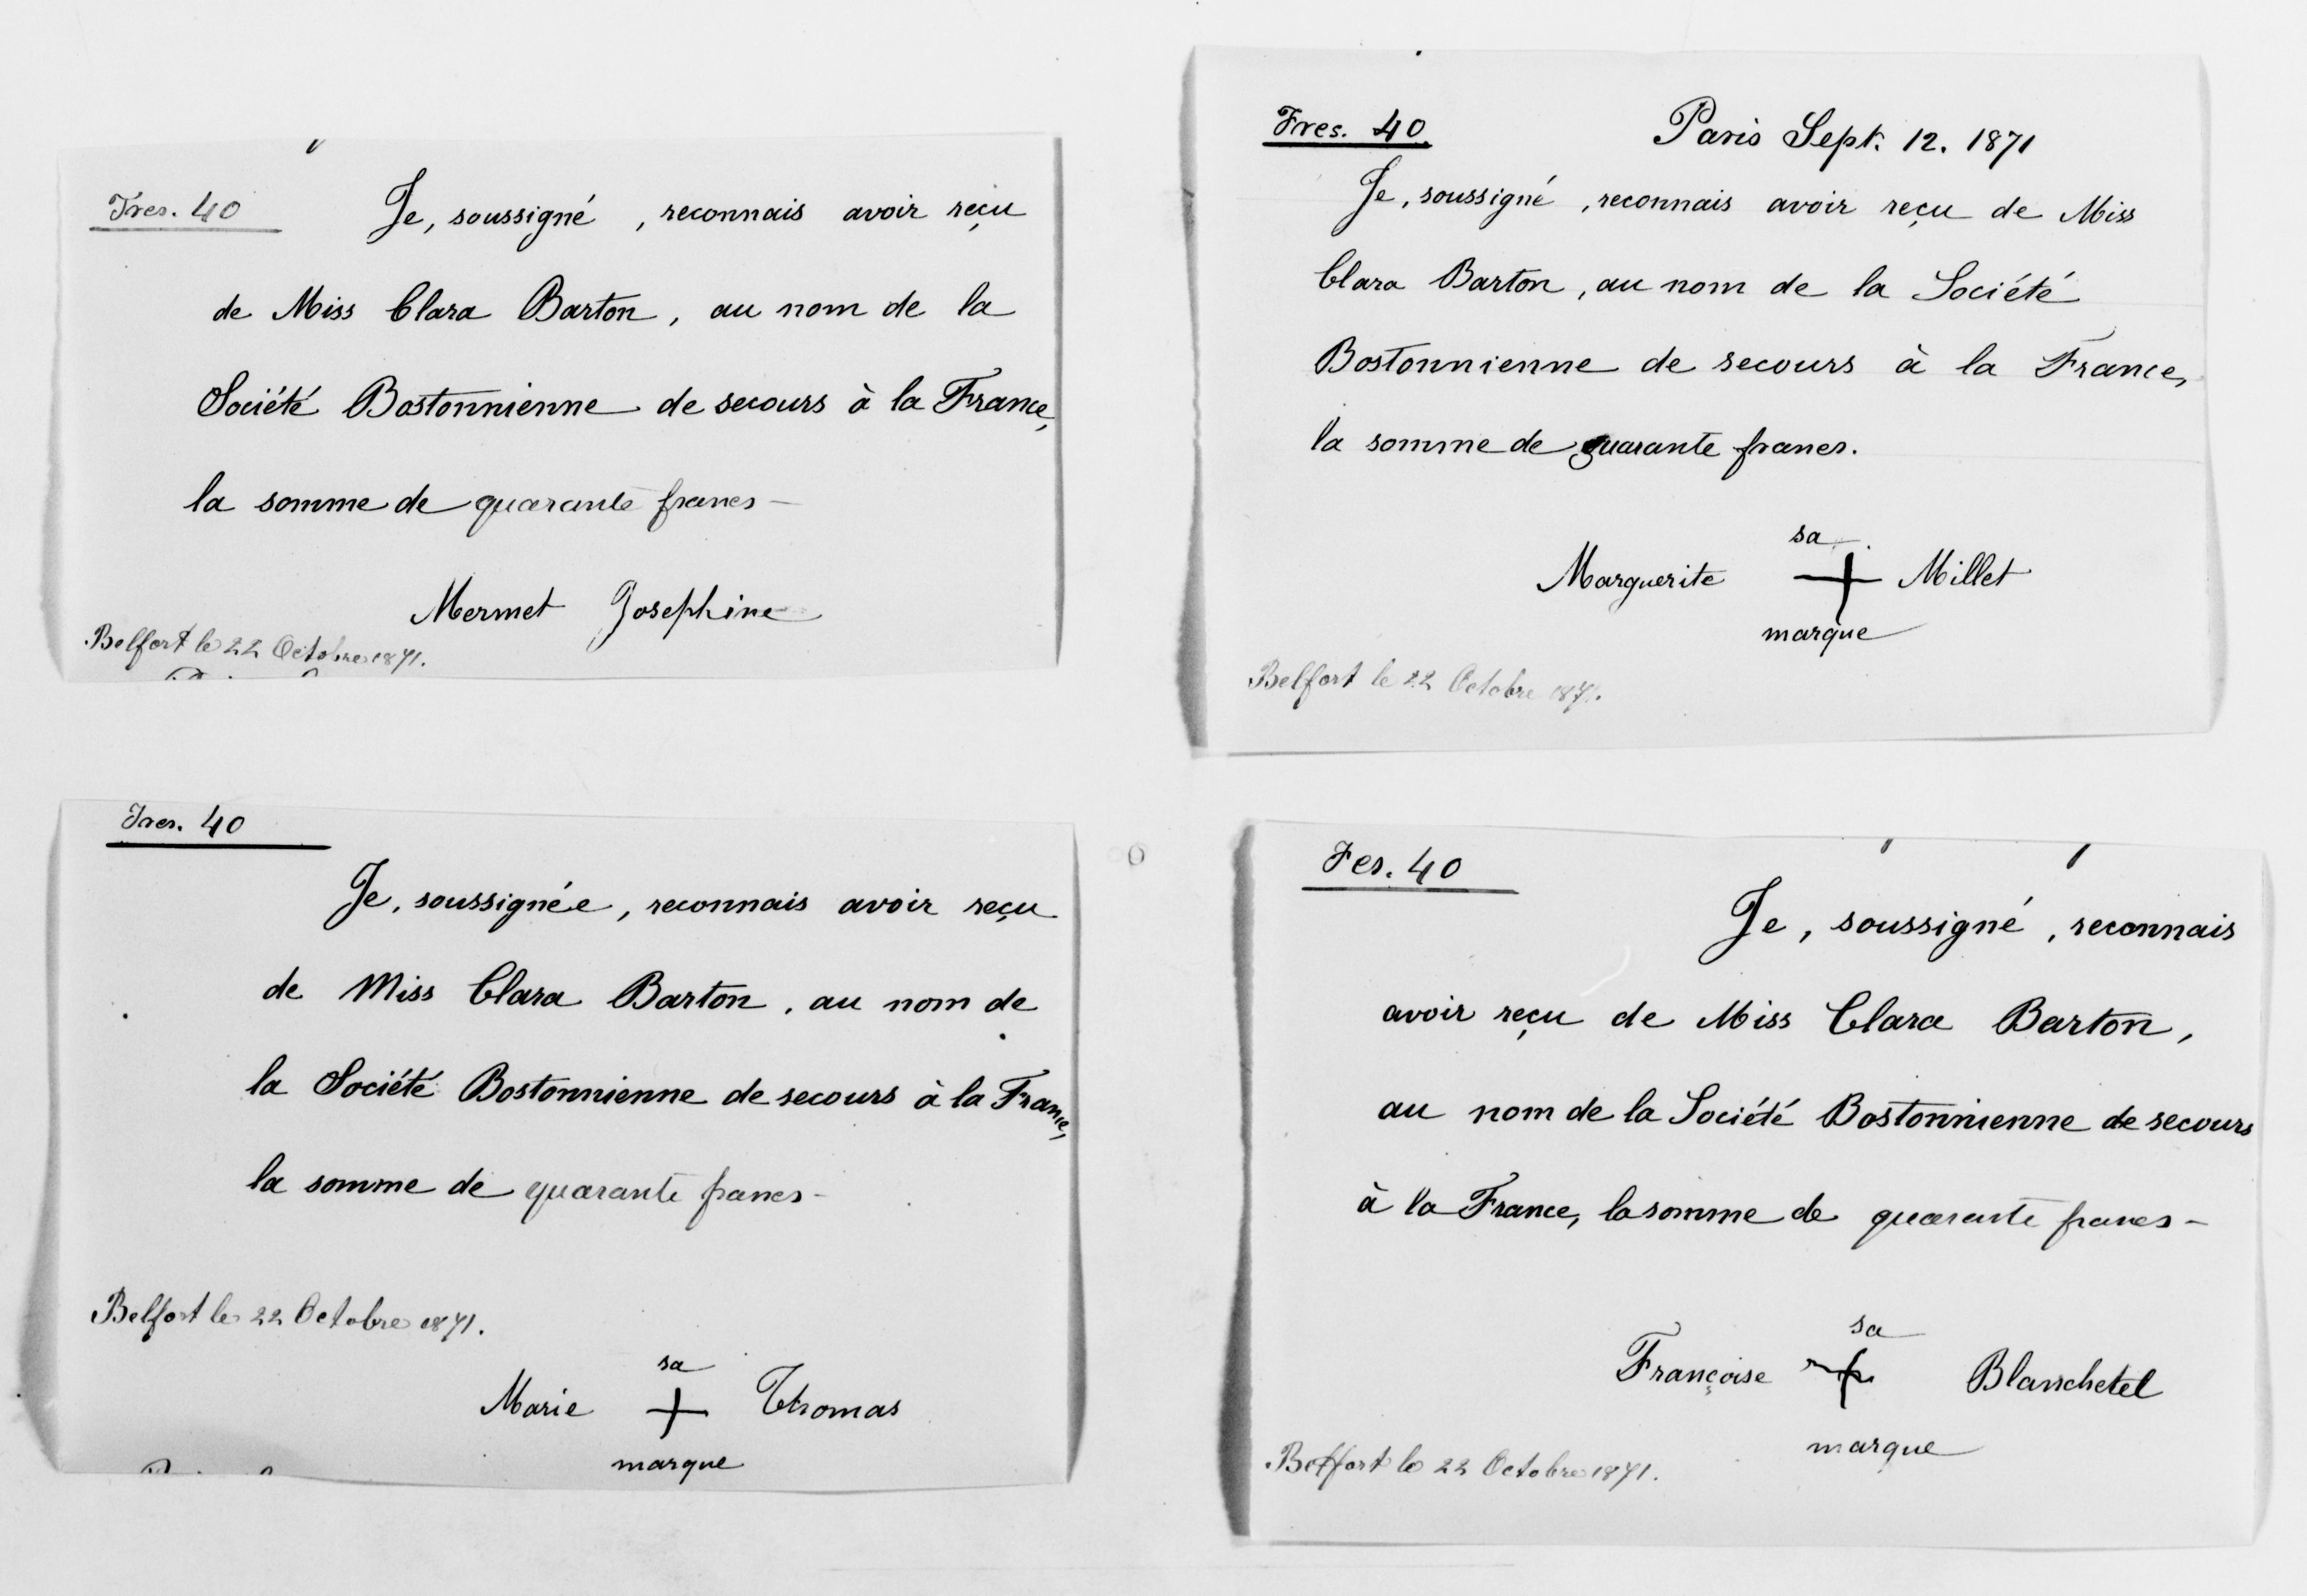 Frcs. 40
Je, soussigné, reconnais avoir reçu
de Miss Clara Barton, au nom de la
Société Bostonnienne de secours à la France,
la somme de quarante francs—
Mermet Josephine
Belfort le 22 Octobre 1871.
Frcs. 40
Paris Sept. 12. 1871
Je, soussigné, reconnais avoir reçu de Miss
Clara Barton, au nom de la Société
Bostonnienne de secours à la France,
la somme de quarante francs.
sa
Marguerite + Millet
marque
Belfort le 22 Octobre 1871.
Frcs. 40
Je, soussignée, reconnais avoir reçu
de Miss Clara Barton, au nom de
la Société Bostonnienne de secours à la France,
la somme de quarante francs-
Belfort le 22 Octobre 1871.
sa
Marie + Thomas
marque
Fcs. 40
Je, soussigné, reconnais
avoir reçu de Miss Clara Barton,
au nom de la Société Bostonnienne de secours
à la France, la somme de quarante francs-
sa
Françoise + Blanchetet
marque
Belfort le 22 Octobre 1871.